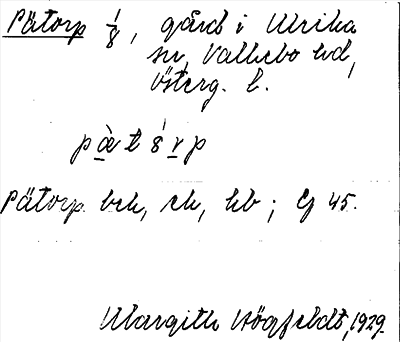 Pätorp 1/8, gård i Ulrika
sn, Vallebo hd,
Österg. l.
Pätorp bch, ch, hb; Cg 45.
Margith Högfeldt, 1929.